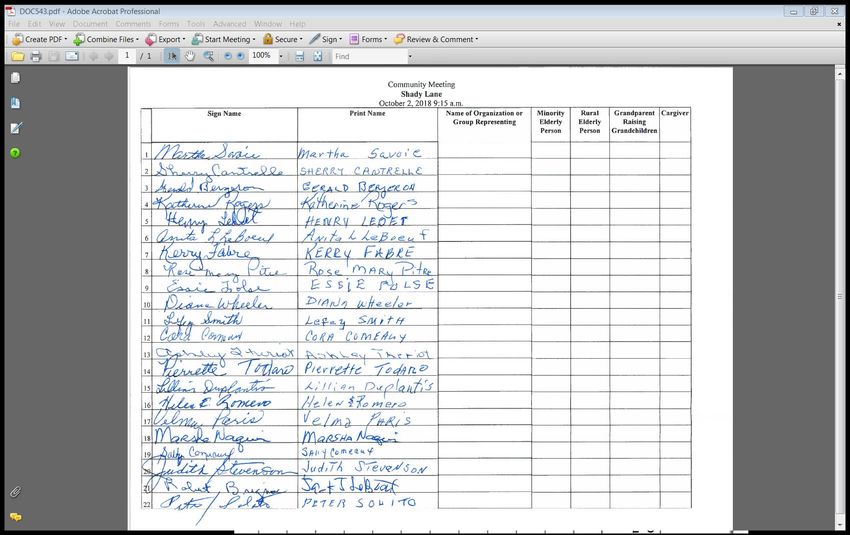 DOC543.pdf - Adobe Acrobat Professional
File Edit View Document Comments Forms Tools Advanced Window Help
Create PDF Combine Files Export Start Meeting Secure Sign Forms Review & Comment
1 / 1 100% Find
Community Meeting
Shady Lane
October 2, 2018 9:15 a.m.
Sign Name Print Name Name of Organization or Group Representing Minority Elderly Person Rural Elderly Person Grandparent Raising Grandchildren Cargiver
1 Martha Savoie Martha Savoie
2 Sherry Cantrelle SHERRY CANTRELLE
3 Gerald Bergeron GERALD BERGERON
4 Katherine Rogers Katherine Rogers
5 Henry Ledet HENRY LEDET
6 Anita L LeBoeuf Anita L LeBoeuf
7 Kerry Fabre KERRY FABRE
8 Rose Mary Pitre Rose MARY Pitre
9 Essie Folse ESSIE FOLSE
10 Diana Wheeler DIANA Wheeler
11 LeRoy Smith LeRoy SMITH
12 Cora Comeaux CORA COMEAUX
13 Ashley Theriot Ashley Theriot
14 Pierrette Todaro Pierrette TODARO
15 Lillian Duplantis Lillian Duplantis
16 Helen E. Romero Helen E Romero
17 Velma Paris Velma PARIS
18 Marsha Naquin MARSHA Naquin
19 Sally Comeaux SAlly Comeaux
20 Judith Stevenson Judith STevenSON
21 Robert
22 Peter PETER SOLITO